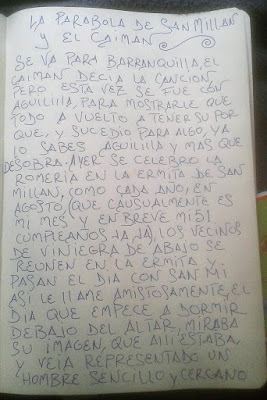 LA PARABOLA DE SAN MILLAN
Y EL CAIMAN
SE VA PARA BARRANQUILLA, EL
CAIMAN DECIA LA CANCION
PERO ESTA VEZ SE FUE CON
AGUILILLA, PARA MOSTRARLE QUE
TODO A VUELTO A TENER SU POR
QUE, Y SUCEDIO PARA ALGO, YA
LO SABES AGUILILLA Y MAS QUE
DESOBRA. AYER SE CELEBRO LA
ROMERIA EN LA ERMITA DE SAN
MILLAN, COMO CADA AÑO, EN
AGOSTO, (QUE CAUSUALMENTE ES
MI MES Y EN BREVE MIS
CUMPLEAÑOS JA, JA) LOS VECINOS
DE VINIEGRA DE ABAJO SE
REUNEN EN LA ERMITA Y
PASAN EL DIA CON SAN MI
ASI LE LLAME AMISTOSAMENTE, EL
DIA QUE EMPECE A DORMIR
DEBAJO DEL ALTAR, MIRABA
SU IMAGEN, QUE ALLI ESTABA,
Y VEIA REPRESENTADO UN
HOMBRE SENCILLO Y CERCANO